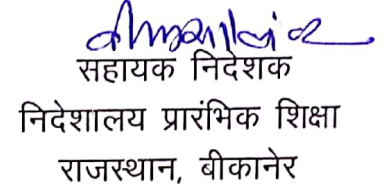 सहायक निदेशक
निदेशालय प्रारंभिक शिक्षा
राजस्थान, बीकानेर